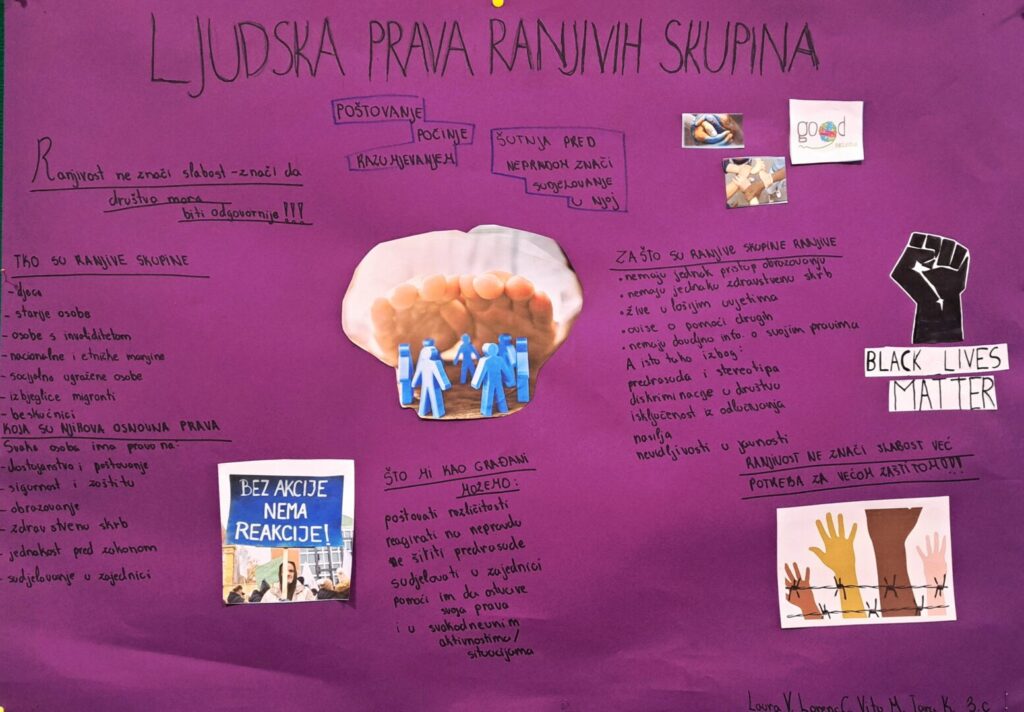 LJUDSKA PRAVA RANJIVIH SKUPINA
POŠTOVANJE
POČINJE
RAZUMJEVANJEM
ŠUTNJA PRED
NEPRADOM ZNAČI
SUDJELOVANJE
U NJOJ
good
Ranjivost ne znači slabost - znači da
društvo mora
biti odgovornije!!!
TKO SU RANJIVE SKUPINE
- djeca
- starije osobe
- osobe s invaliditetom
- nacionalne i etničke manjine
- socijalno ugrožene osobe
- izbjeglice migranti
- beskućnici
KOJA SU NJIHOVA OSNOVNA PRAVA
Svaka osoba ima pravo na:
- dostojanstvo i poštovanje
- sigurnost i zaštitu
- obrazovanje
- zdravstvenu skrb
- jednakost pred zakonom
- sudjelovanje u zajednici
BEZ AKCIJE
NEMA
REAKCIJE!
ŠTO MI KAO GRAĐANI
MOŽEMO:
poštovati različitosti
reagirati na nepravdu
ne širiti predrasude
sudjelovati u zajednici
pomoći im da ostvare
svoja prava
i u svakodnevnim
aktivnostima/
situacijama
ZAŠTO SU RANJIVE SKUPINE RANJIVE
• nemaju jednak pristup obrazovanju
• nemaju jednaku zdravstvenu skrb
• žive u lošijim uvjetima
• ovise o pomoći drugih
• nemaju dovoljno info. o svojim pravima
A isto tako i zbog:
predrasuda i stereotipa
diskriminacije u društvu
isključenost iz odlučivanja
nasilja
nevidljivosti u javnosti
BLACK LIVES
MATTER
RANJIVOST NE ZNAČI SLABOST VEĆ
POTREBA ZA VEĆOM ZAŠTITOM!!!
Laura V. Vito M. K. 3.c